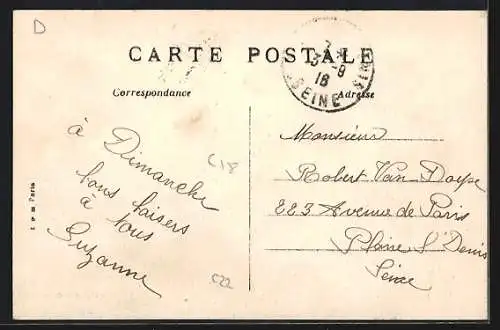 D
CARTE POSTALE
3-9
18
SEINE
Correspondance
Adresse
à Dimanche
bons baisers
à tous
Suzanne
C18
C22
Monsieur
Robert Van
223 Avenue de Paris
Plaine St Denis
Seine
Paris